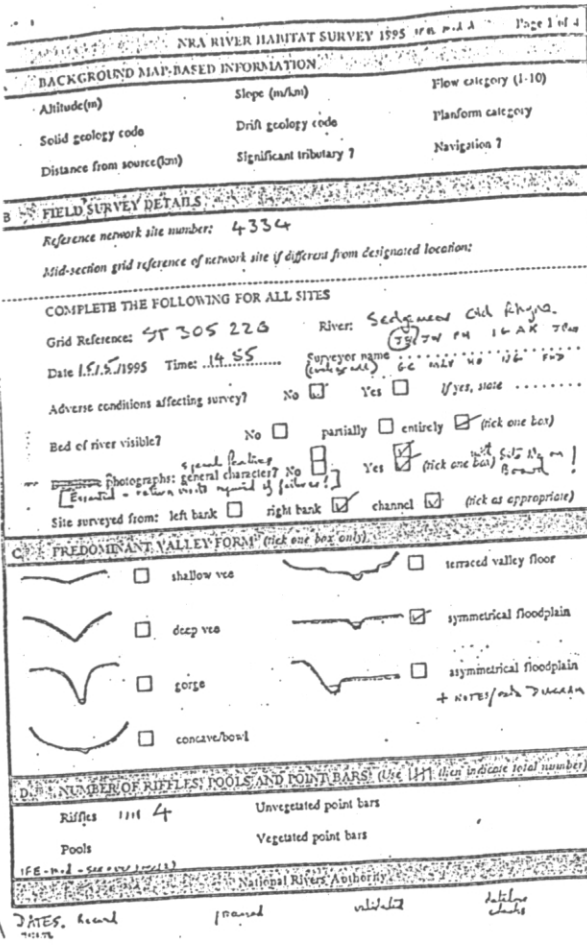 NRA RIVER HABITAT SURVEY 1995 IFE Page 1 of 4
BACKGROUND MAP-BASED INFORMATION
Altitude(m) Slope (m/km) Flow category (1-10)
Solid geology code Drift geology code Planform category
Distance from source(km) Significant tributary ? Navigation ?
B FIELD SURVEY DETAILS
Reference network site number: 4334
Mid-section grid reference of network site if different from designated location:
COMPLETE THE FOLLOWING FOR ALL SITES
Grid Reference: ST 305 228 River: Sedgemoor Old Rhyne.
Date 15/5/1995 Time: 14 55 Surveyor name
Adverse conditions affecting survey? No Yes If yes, state ........
Bed of river visible? No partially entirely (tick one box)
special features
photographs: general character? No Yes (tick one box) with Site No on Board!
[Essential - return visits required if failures!]
Site surveyed from: left bank right bank channel (tick as appropriate)
C PREDOMINANT VALLEY FORM (tick one box only)
shallow vee terraced valley floor
deep vee symmetrical floodplain
gorge asymmetrical floodplain
+ NOTES/ DIAGRAM
concave/bowl
D NUMBER OF RIFFLES, POOLS AND POINT BARS (Use then indicate total number)
Riffles IIII 4 Unvegetated point bars
Pools Vegetated point bars
National Rivers Authority
DATES. Record validated